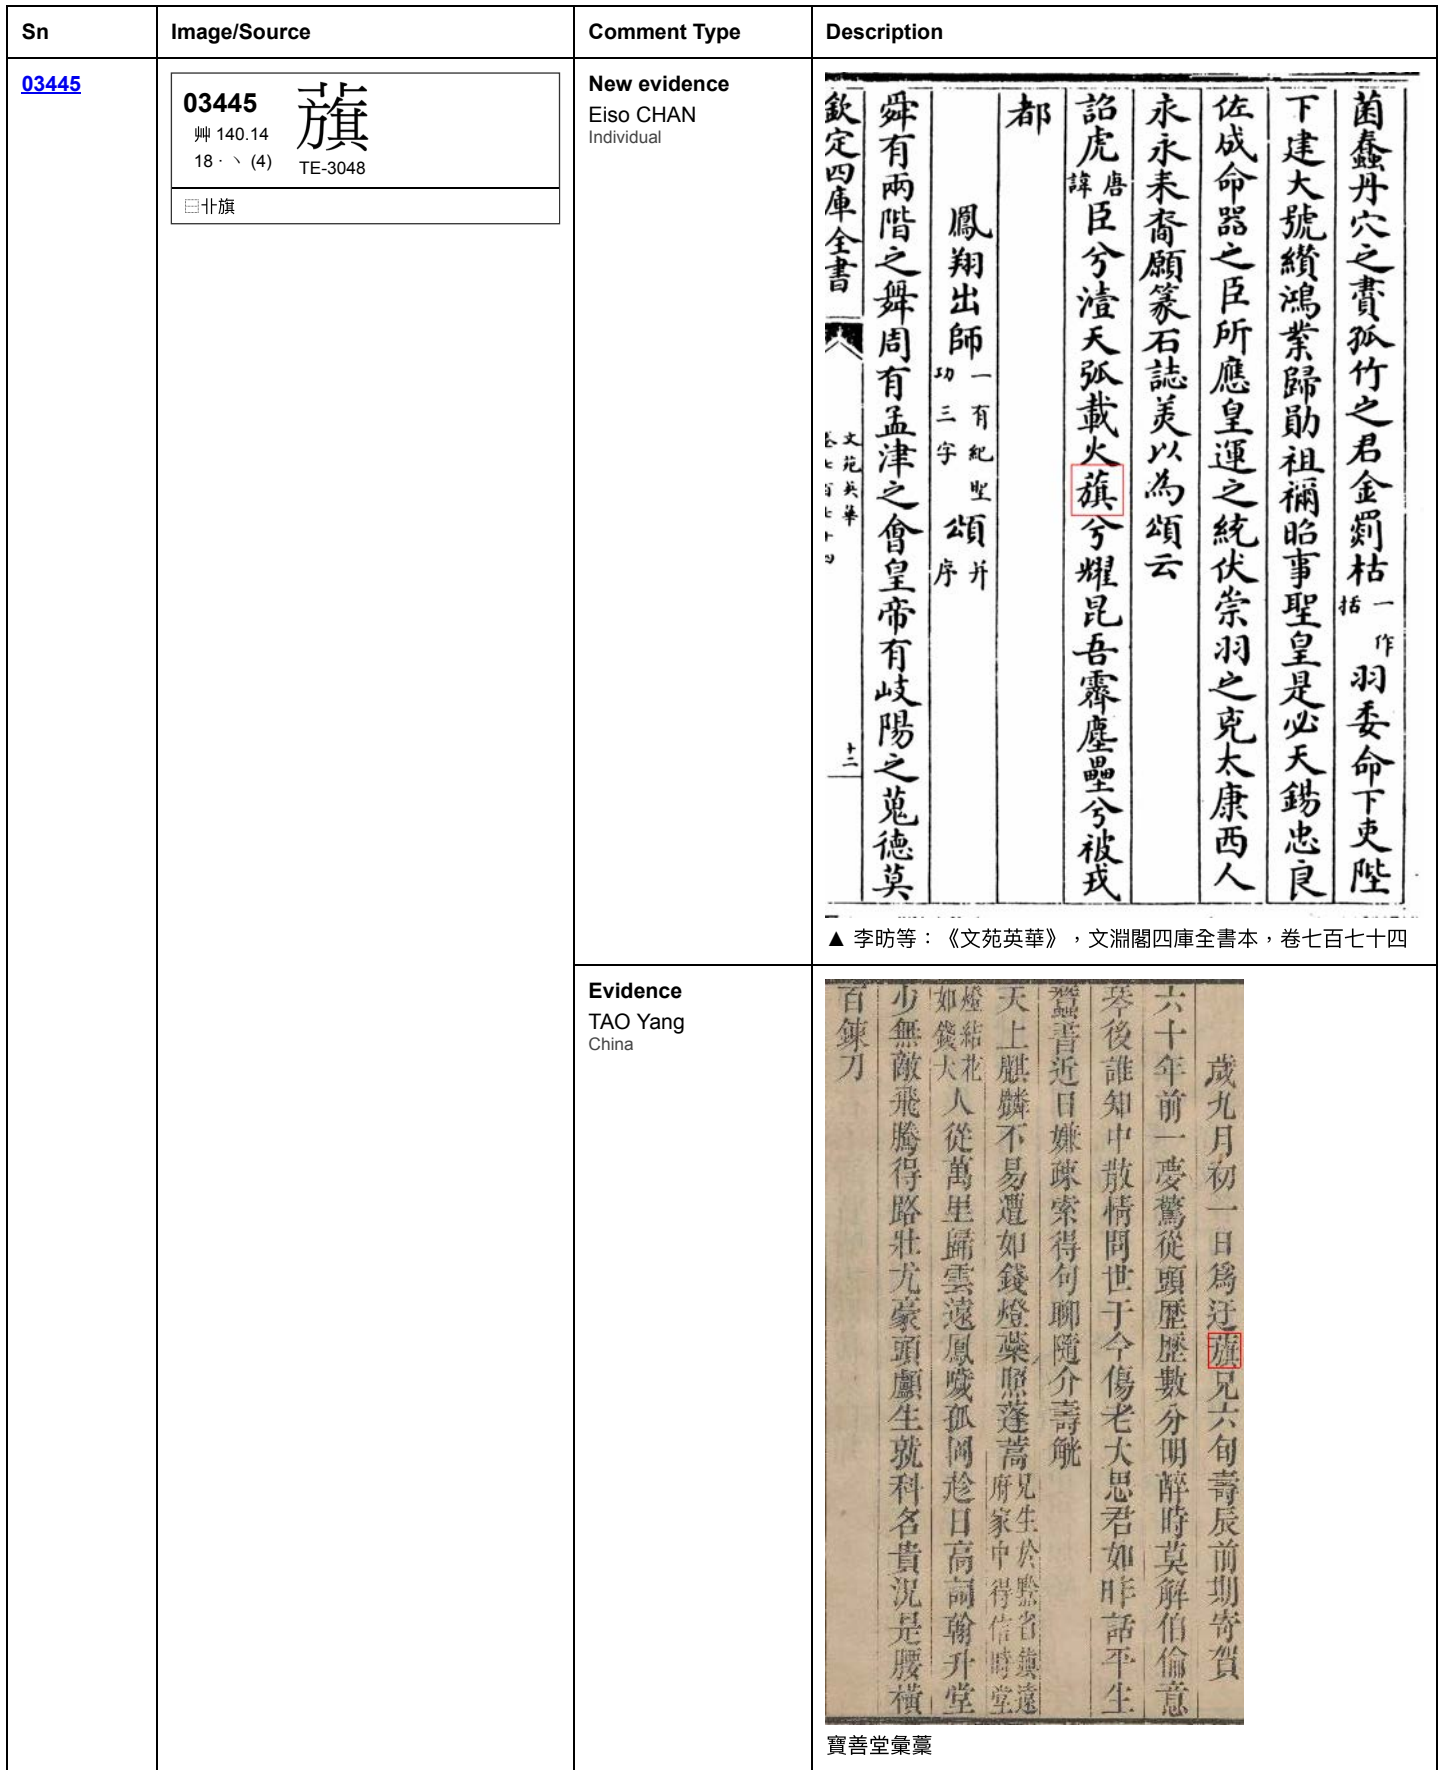 Sn Image/Source Comment Type Description
03445
03445
艸 140.14
18 · ㇔ (4)
TE-3048
⿱卝旗
New evidence
Eiso CHAN
Individual
菌蠢丹穴之賮孤竹之君金罰枯一作括羽委命下吏陛
下建大號纘鴻業歸勛祖禰昭事聖皇是必天錫忠良
佐成命噐之臣所應皇運之統伏崇羽之克太康西人
永永耒裔願篆石誌美以為頌云
詔虎唐諱臣兮澅天弧載火𦽊兮耀昆吾霽塵壘兮被戎
都
鳳翔出師一有紀聖功三字頌并序
舜有兩階之舞周有孟津之會皇帝有岐陽之蒐德莫
欽定四庫全書
文苑英華
卷七百七十四
十二
▲ 李昉等：《文苑英華》，文淵閣四庫全書本，卷七百七十四
Evidence
TAO Yang
China
歲九月初一日爲迂𦽊兄六旬壽辰前期寄賀
六十年前一夢驚從頭歷歷數分明醉時莫解伯倫意
琴後誰知中散情問世于今傷老大思君如昨話平生
蠶書近日嫌疎索得句聊隨介壽觥
天上麒麟不易遭如錢燈蘂照蓬蒿兄生於黔省鎮遠府家中得信時堂
燈結花如錢大人從萬里歸雲遠鳳噦孤岡趁日高詞翰升堂
少無敵飛騰得路壯尤豪頭顱生就科名貴況是腰橫
百鍊刀
寶善堂彙藁